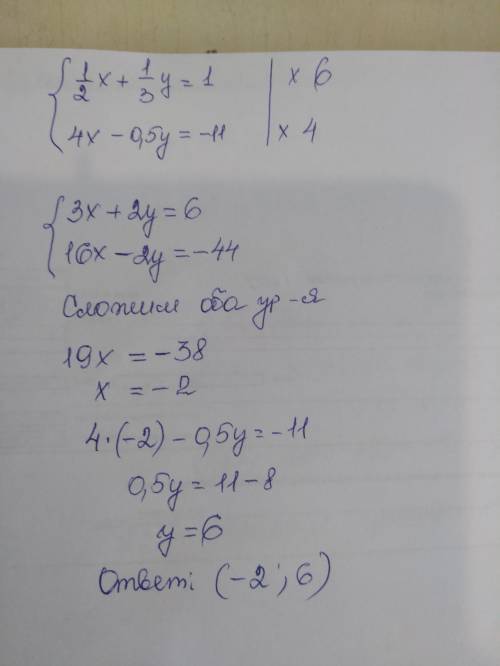 1/2 x + 1/3 y = 1 | x 6
4x - 0,5y = -11 | x 4
3x + 2y = 6
16x - 2y = -44
Сложим оба ур-я
19x = -38
x = -2
4·(-2) - 0,5y = -11
0,5y = 11 - 8
y = 6
Ответ: (-2; 6)